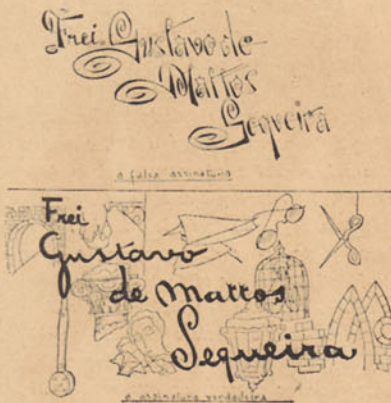 Frei Gustavo de
Mattos
Sequeira
a falsa assinatura
Frei
Gustavo
de Mattos
Sequeira
a assinatura verdadeira